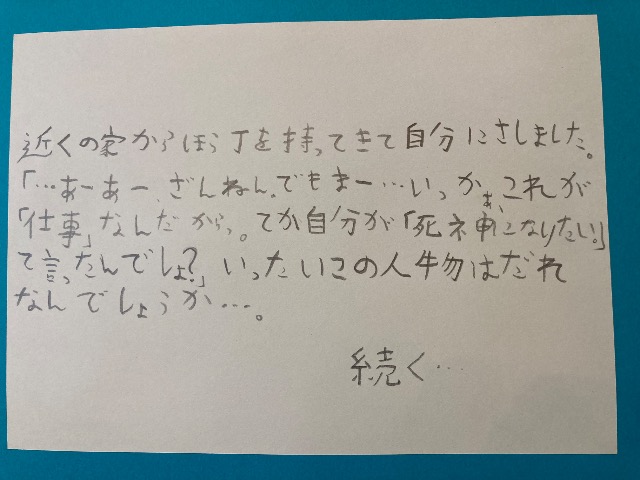 近くの家からほう丁を持ってきて自分にさしました。
「…あーあー、ざんねん。でもまー…いっかぁ、これが
「仕事」なんだからっ。てか自分が「死ネ申になりたい。」
て言ったんでしょ?」いったいこの人物はだれ
なんでしょうか…。
続く…